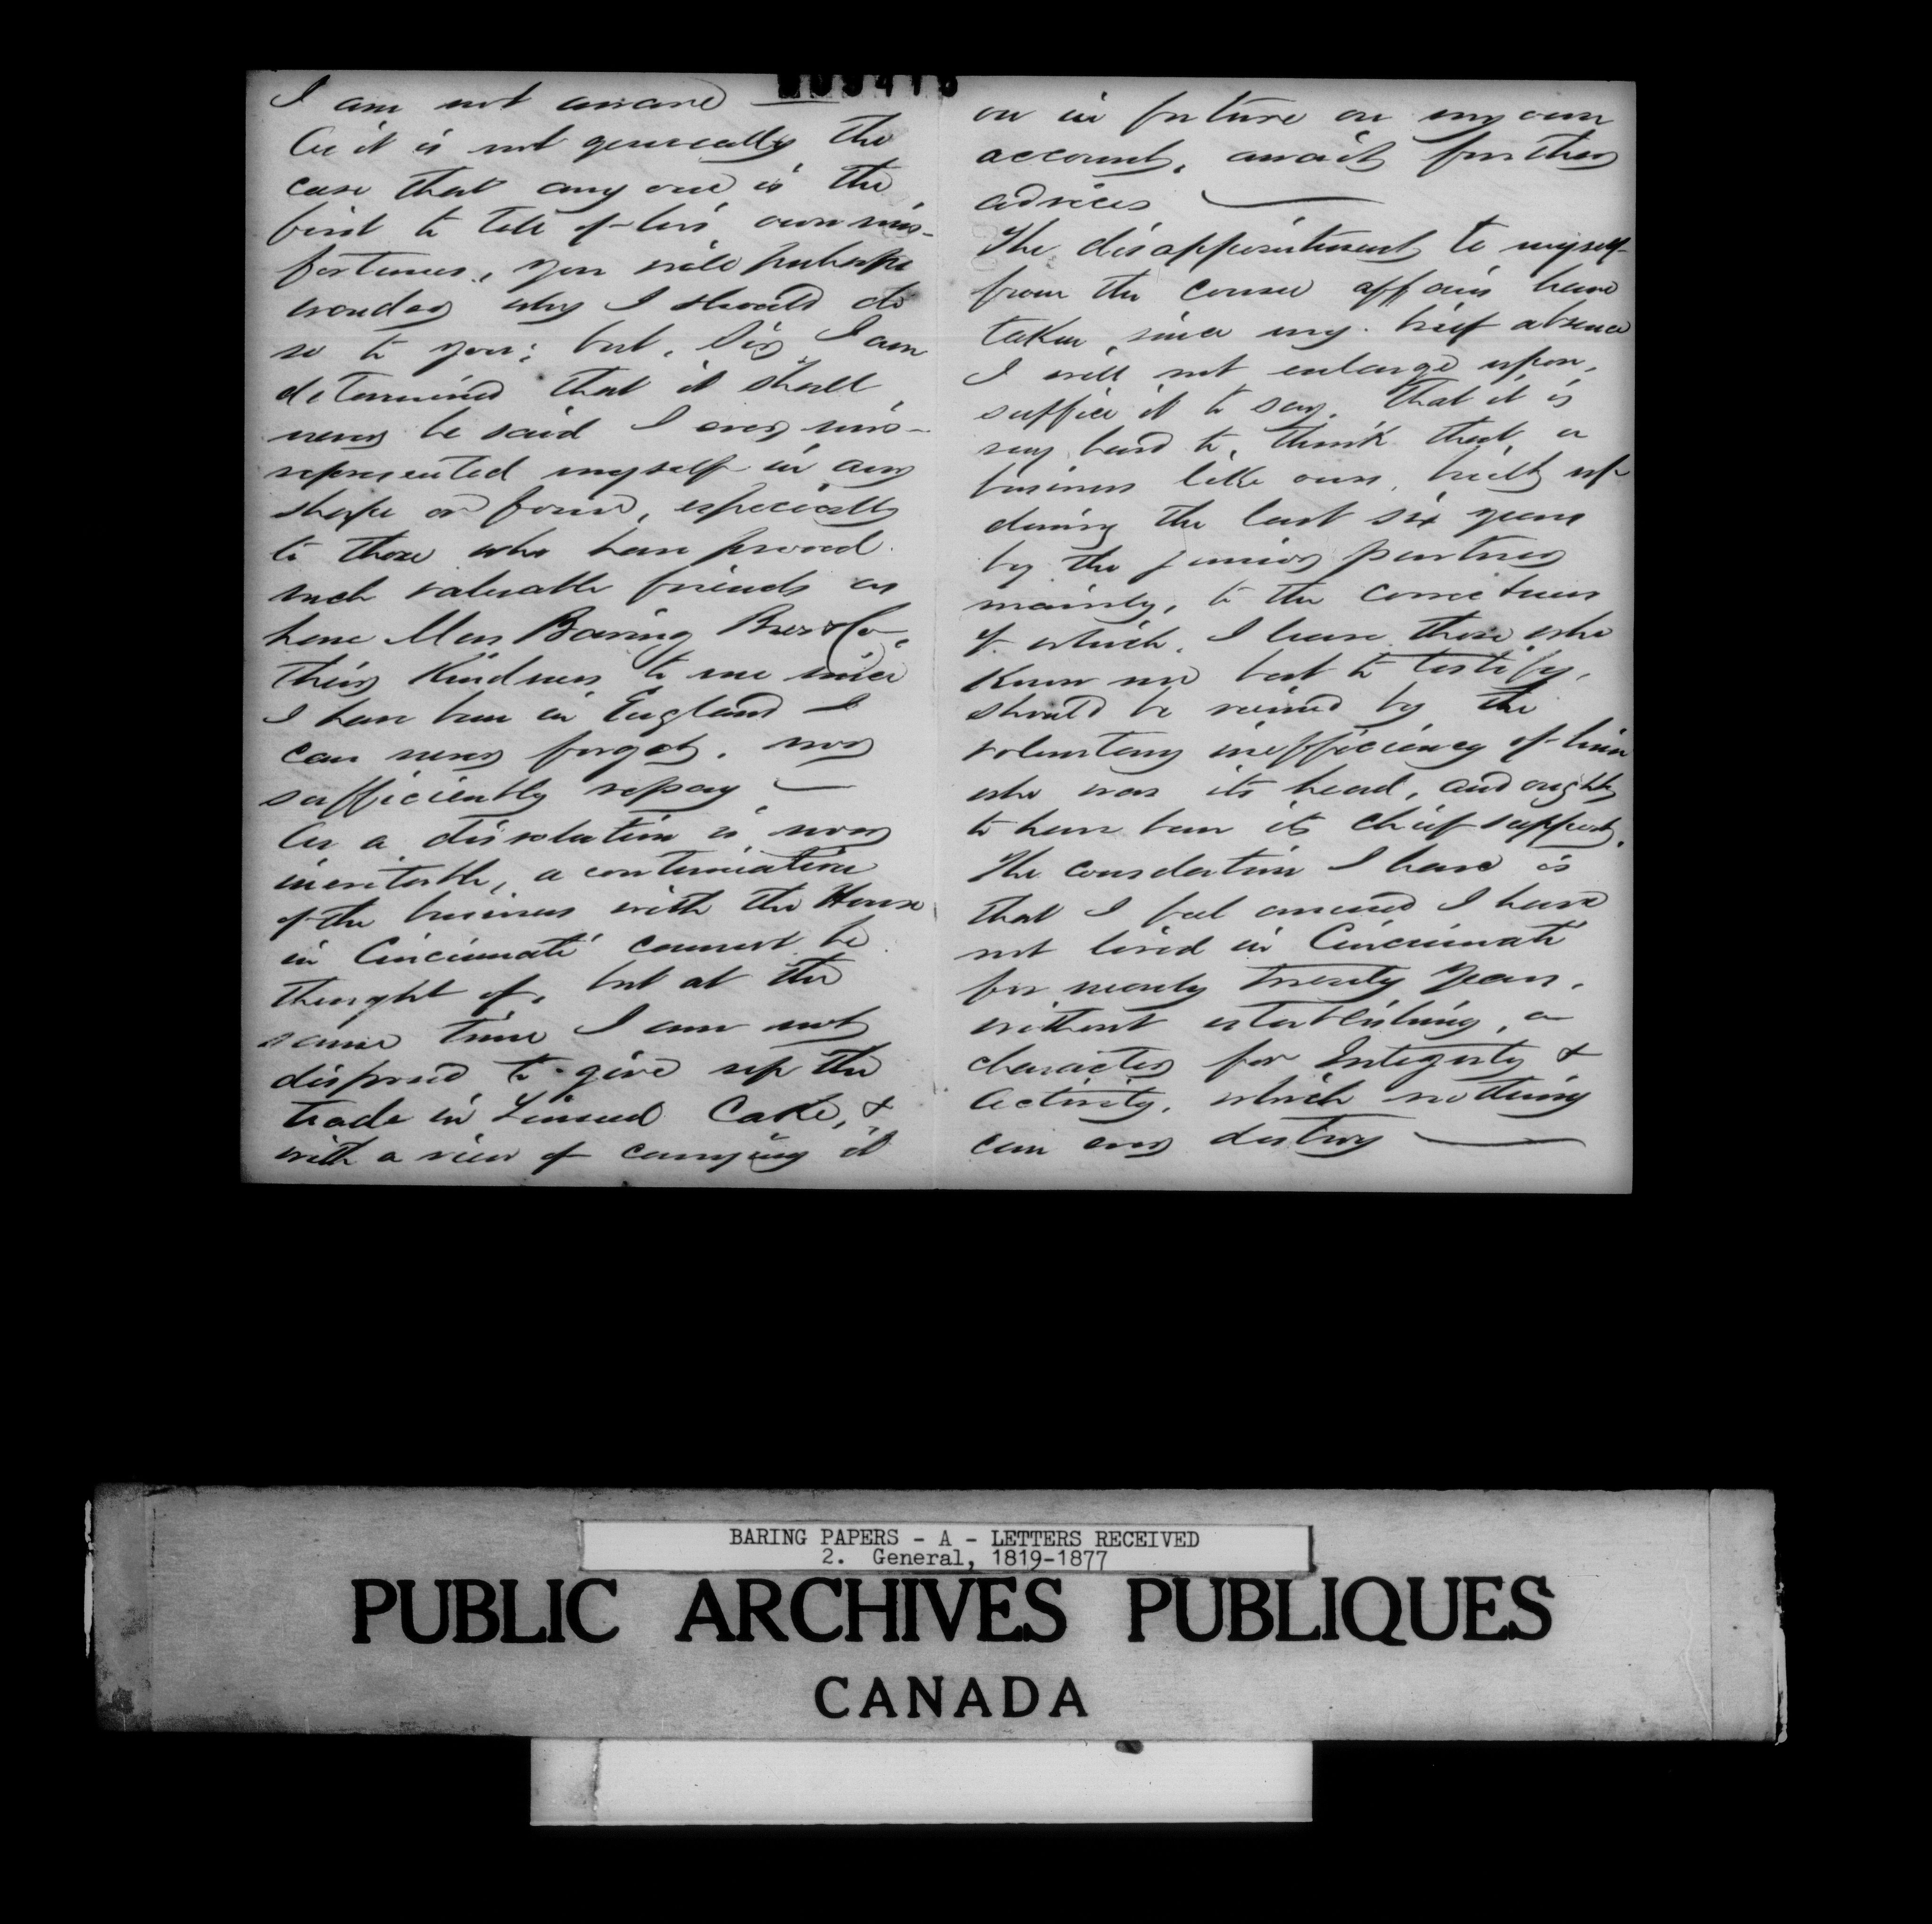 I am not aware —
As it is not generally the
case that any one is the
first to tell of his own mis-
fortunes, you will perhaps
wonder why I should do
so to you; but, Sir, I am
determined that it shall
never be said I ever mis-
represented myself in any
shape or form, especially
to those who have proved
such valuable friends as
have Mess Baring Bros & Co.
Their Kindness to me since
I have been in England I
can never forget, nor
sufficiently repay —
As a dissolution is now
inevitable, a continuation
of the business with the House
in Cincinnati cannot be
thought of, but at the
same time I am not
disposed to give up the
trade in Linseed Cake, &
with a view of carrying it
on in future on my own
account, await further
advices —
The disappointment to myself
from the course affairs have
taken since my brief absence
I will not enlarge upon,
suffice it to say, that it is
very hard to think that a
business like ours, built up
during the last six years
by the junior partner
mainly, to the correctness
of which, I leave those who
know me best to testify,
should be ruined by the
voluntary inefficiency of him
who was its head, and ought
to have been its chief support.
The consolation I have is
that I feel assured I have
not lived in Cincinnati
for nearly twenty years,
without establishing, a
character for Integrity &
Activity, which nothing
can ever destroy —
BARING PAPERS - A - LETTERS RECEIVED
2. General, 1819-1877
PUBLIC ARCHIVES PUBLIQUES
CANADA